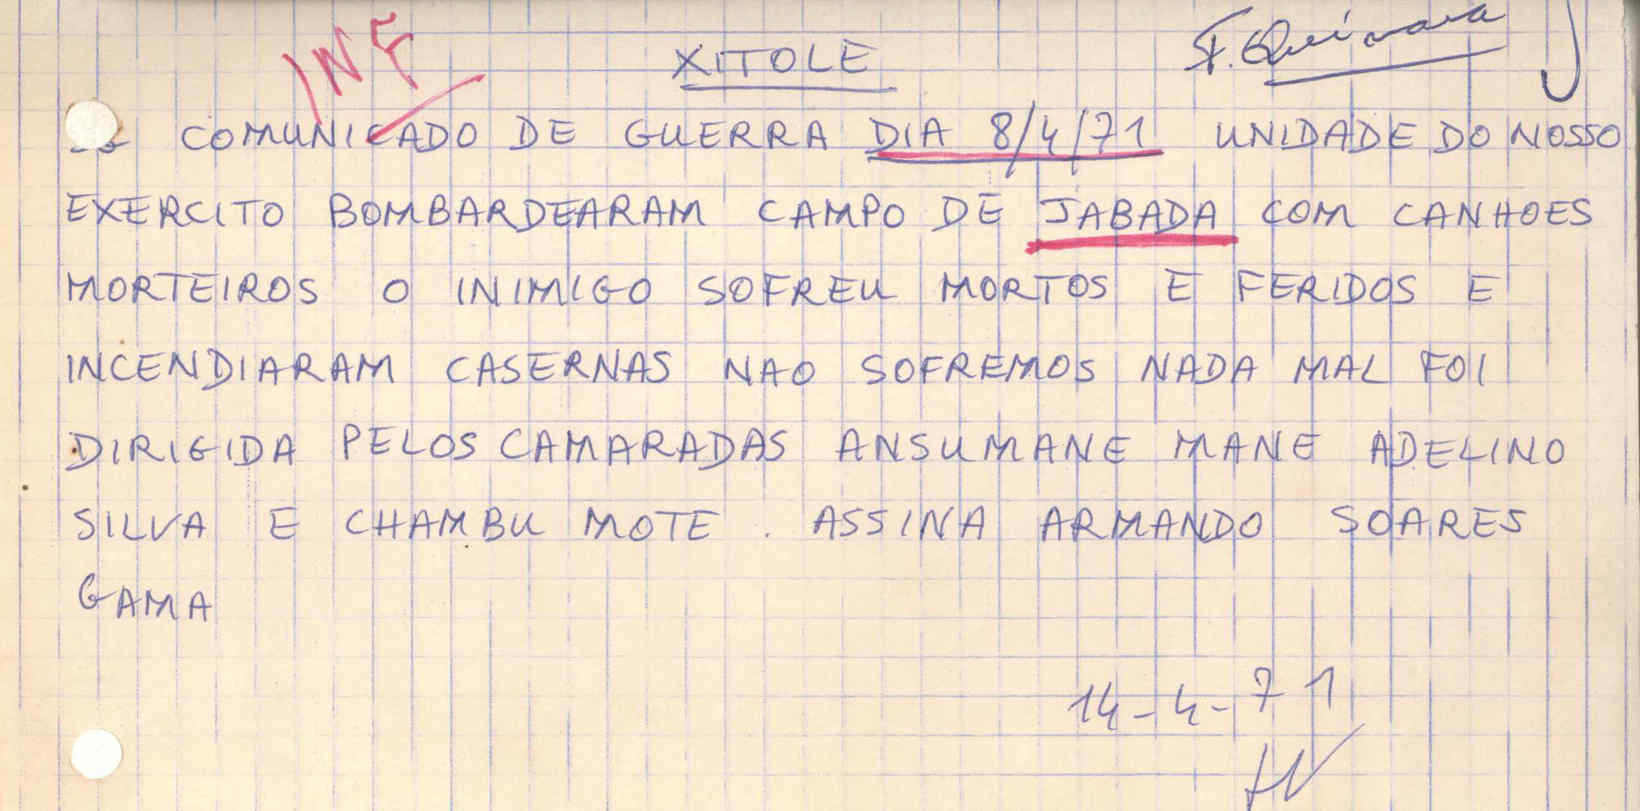 INF
XITOLE
COMUNICADO DE GUERRA DIA 8/4/71 UNIDADE DO NOSSO
EXERCITO BOMBARDEARAM CAMPO DE JABADA COM CANHOES
MORTEIROS O INIMIGO SOFREU MORTOS E FERIDOS E
INCENDIARAM CASERNAS NAO SOFREMOS NADA MAL FOI
DIRIGIDA PELOS CAMARADAS ANSUMANE MANE ADELINO
SILVA E CHAMBU MOTE . ASSINA ARMANDO SOARES
GAMA
14-4-71